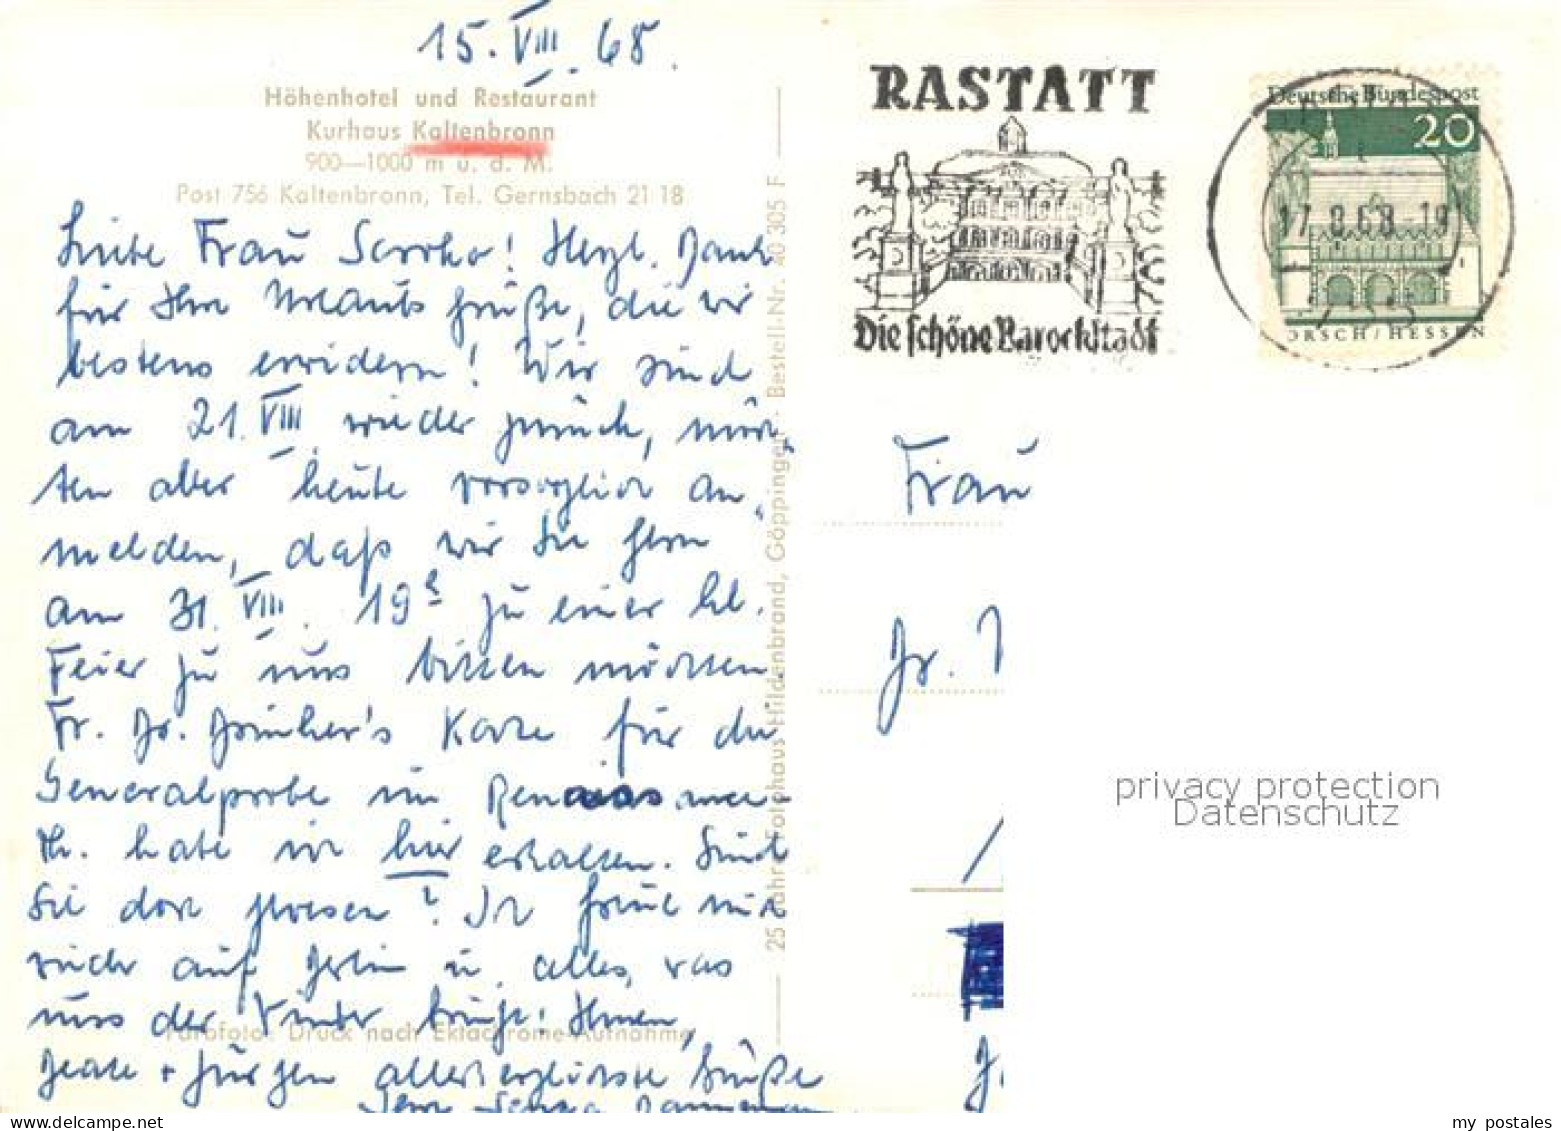 15. VIII. 68.
Höhenhotel und Restaurant
Kurhaus Kaltenbronn
900—1000 m ü. d. M.
Post 756 Kaltenbronn, Tel. Gernsbach 21 18
Liebe Frau Sorrko! Herzl. Dank
für Ihre Urlaubsgrüße, die wir
bestens erwidern! Wir sind
am 21. VIII. wieder zurück, möch-
ten aber heute vorsorglich an-
melden, daß wir Sie gern
am 31. VIII. 19h zu einer kl.
Feier zu uns bitten möchten.
Fr. Dr. Karte für die
Generalprobe im Renaissance-
Th. habe ich hier erhalten. Sind
Sie dort gewesen? Ich freue mich
auf Berlin u. alles, was
uns der Winter bringt! Ihnen,
Beate + Jürgen allerherzlichste Grüße
Ihre
Farbfoto: Druck nach Ektachrome-Aufnahme
25 Jahre Fotohaus Hildenbrand, Göppingen · Bestell-Nr. 40 305 F
RASTATT
Die schöne Barockstadt
Deutsche Bundespost
20
17.8.68-19
LORSCH/HESSEN
Frau
Dr.
privacy protection
Datenschutz
my postales